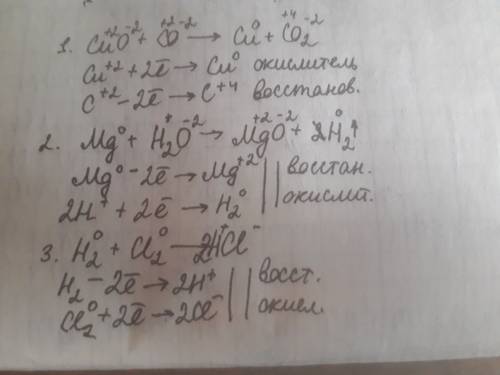 1. Cu⁺²O⁻² + C⁺²O⁻² → Cu⁰ + C⁺⁴O₂⁻²
Cu⁺² + 2ē → Cu⁰ окислитель
C⁺² - 2ē → C⁺⁴ восстанов.
2. Mg⁰ + H₂⁺O⁻² → Mg⁺²O⁻² + H₂⁰
Mg⁰ - 2ē → Mg⁺² || восстан.
2H⁺ + 2ē → H₂⁰ || окислит.
3. H₂⁰ + Cl₂⁰ → 2H⁺Cl⁻
H₂ - 2ē → 2H⁺ || восст.
Cl₂⁰ + 2ē → 2Cl⁻ || окисл.